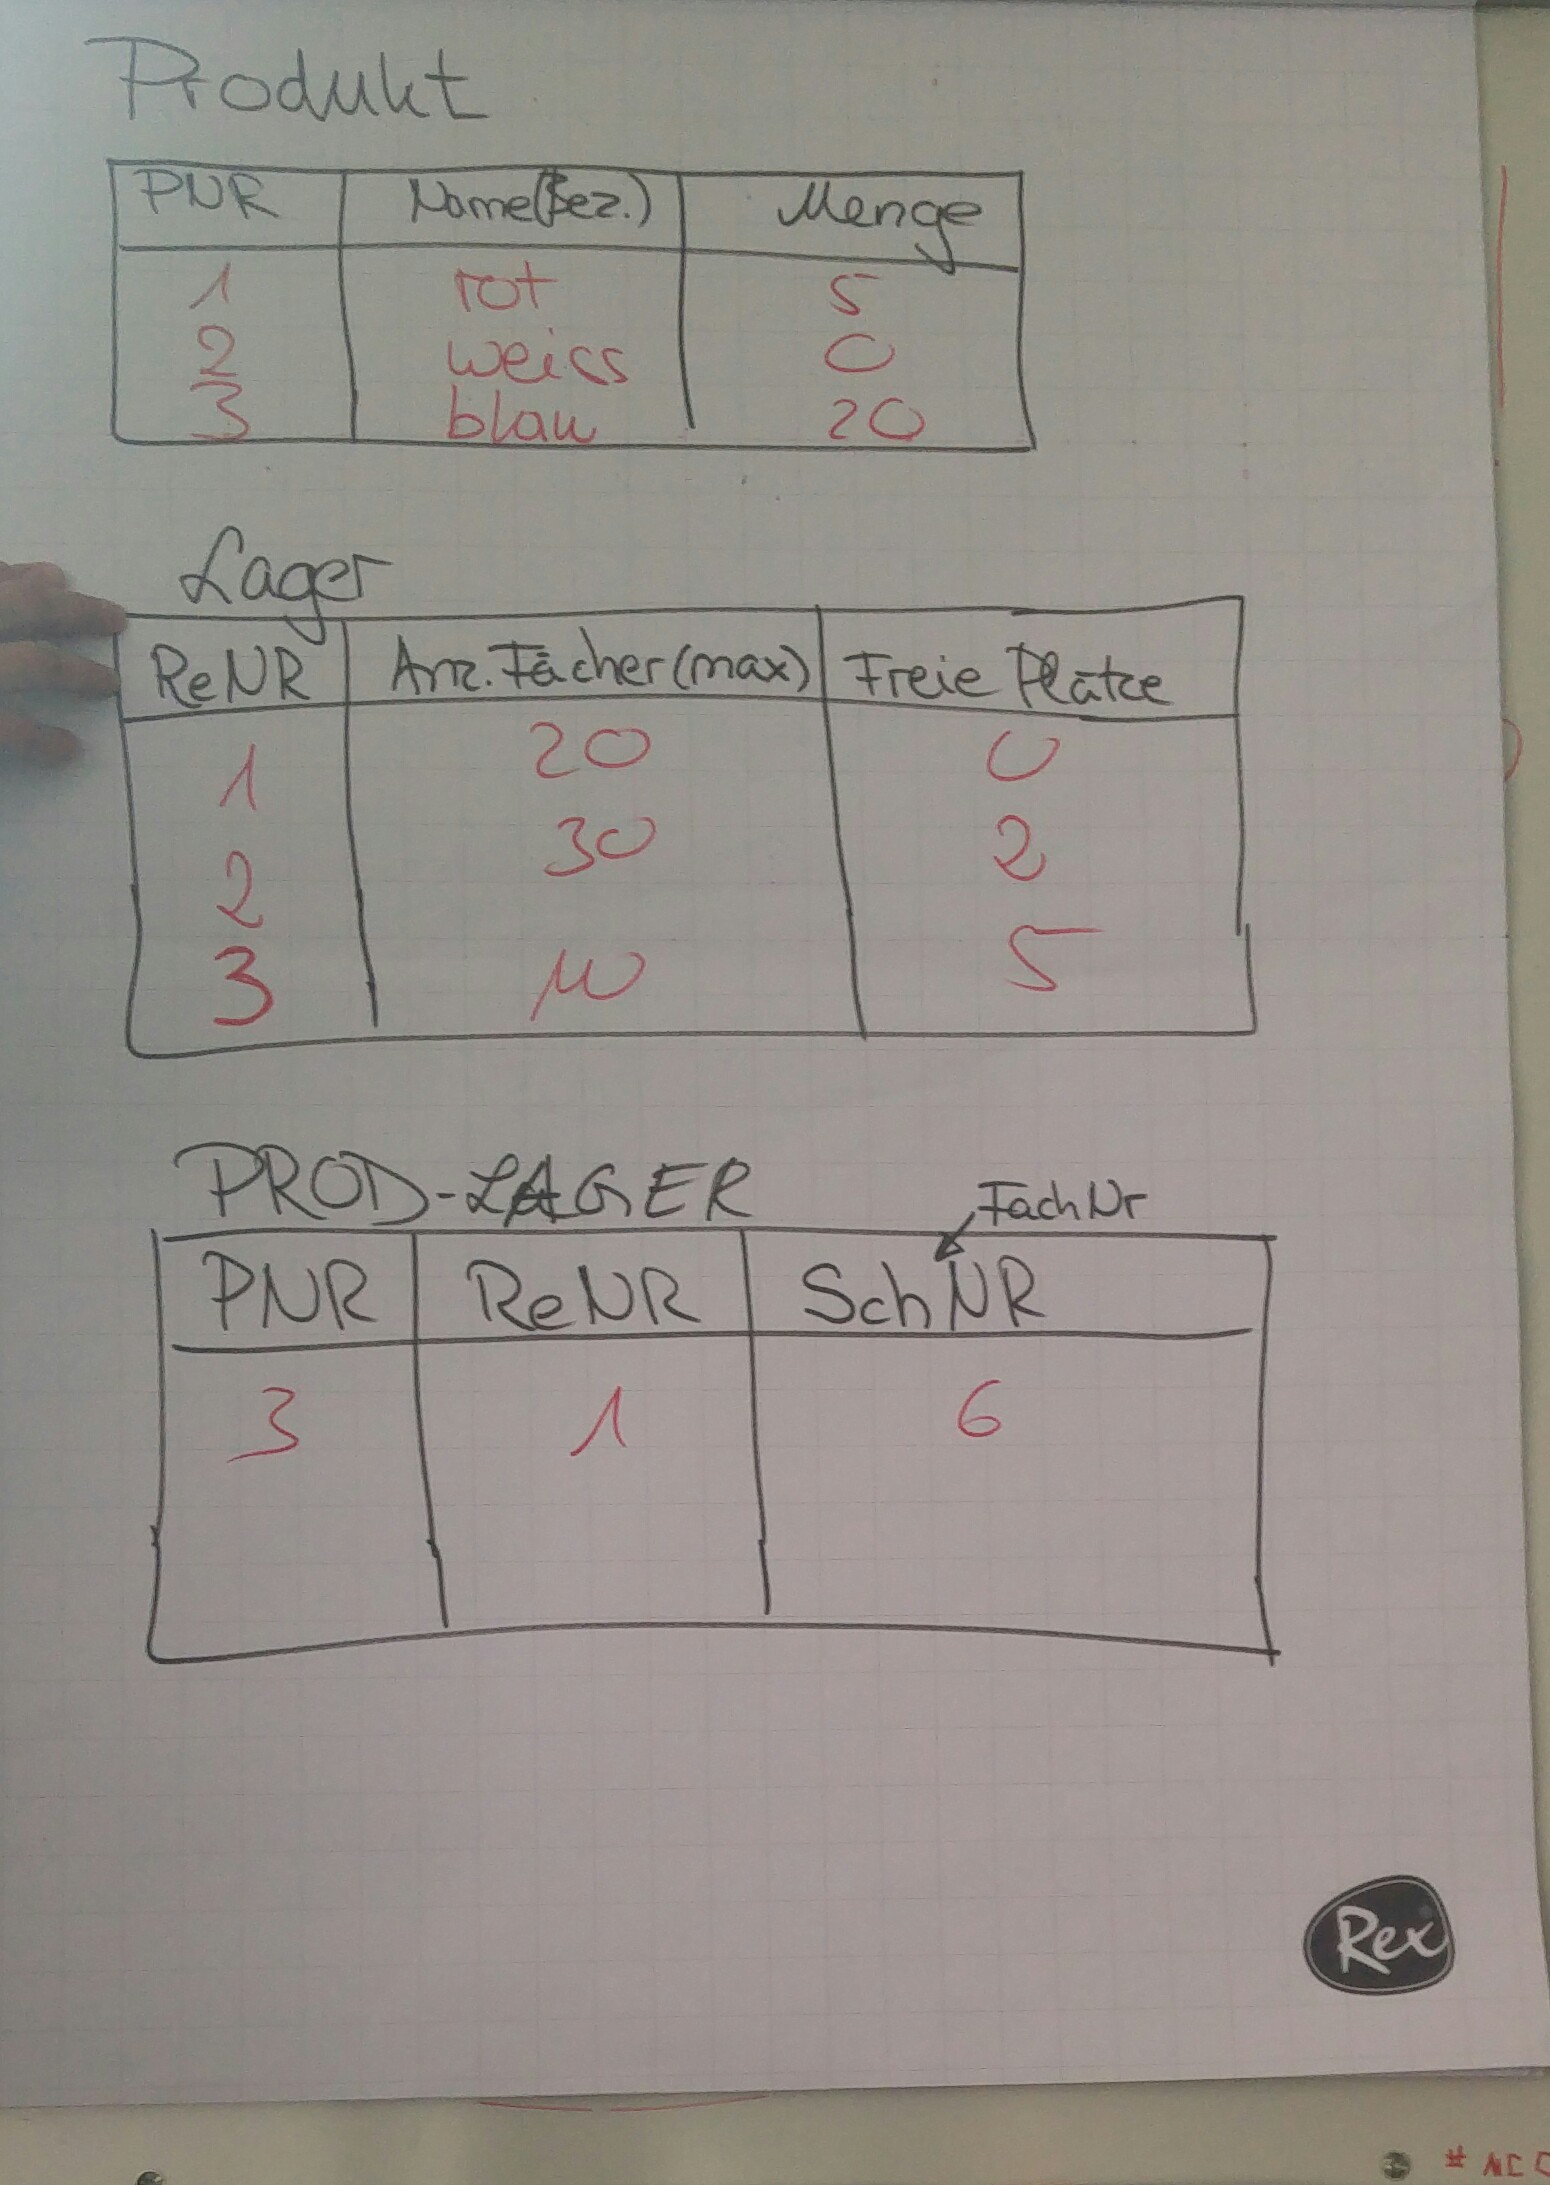 Produkt
PNR Name(Bez.) Menge
1 rot 5
2 weiss 0
3 blau 20
Lager
ReNR Anz. Fächer (max) Freie Plätze
1 20 0
2 30 2
3 10 5
PROD-LAGER
FachNr
PNR ReNR SchNR
3 1 6
Rex